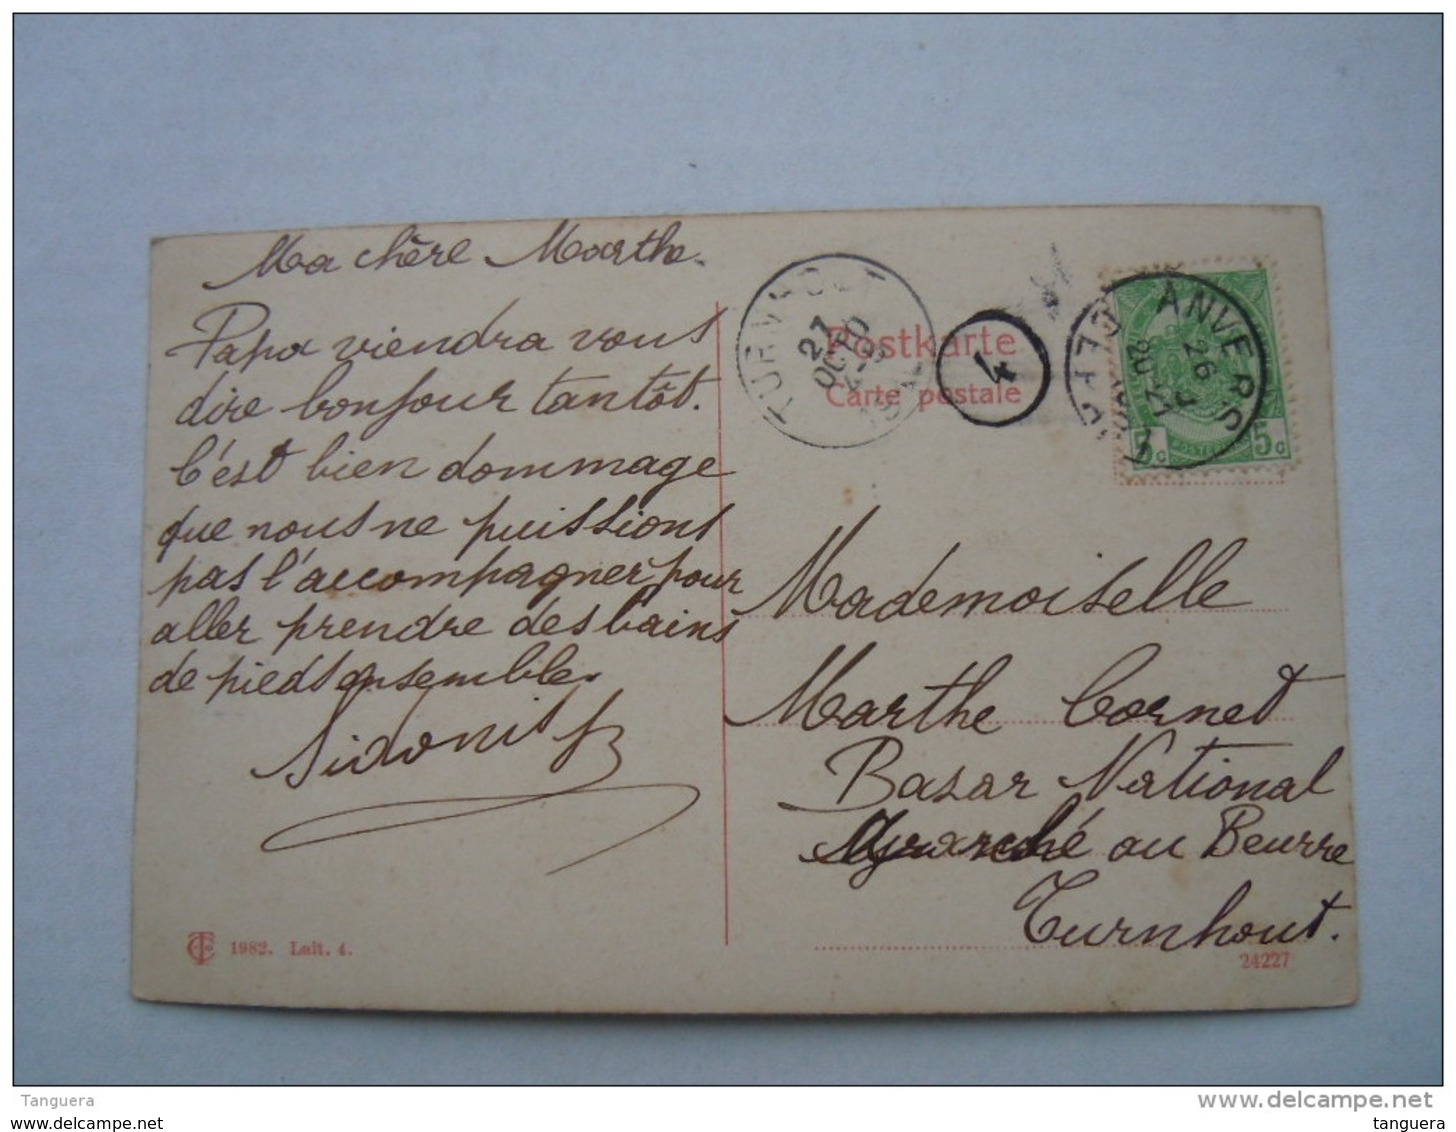 Ma chère Marthe
Papa viendra vous
dire bonjour tantôt.
C'est bien dommage
que nous ne puissions
pas l'accompagner pour
aller prendre des bains
de pieds ensemble.
Sidonie
TURNHOUT
27
OCT
Postkarte
Carte postale
4
ANVERS
26
5c 5c
Mademoiselle
Marthe Cornet
Bazar National
Marché au Beurre
Turnhout.
1982. Lait. 4.
24227
Tanguera
www.delcampe.net
tanguera